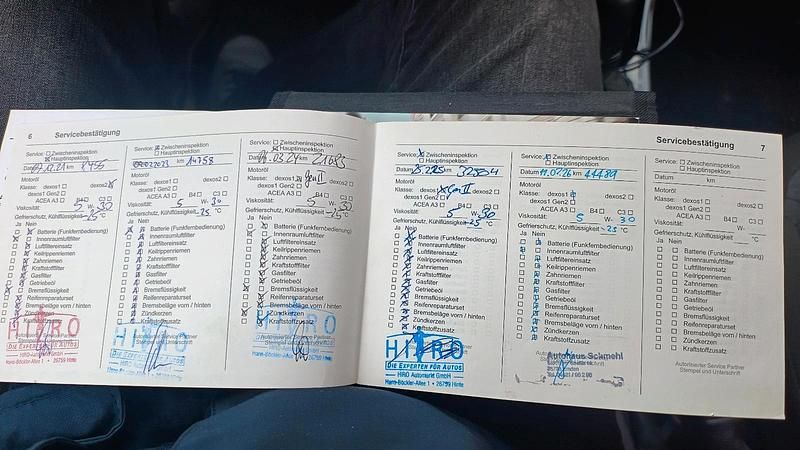 6 Servicebestätigung
Service: Zwischeninspektion
Hauptinspektion
Datum km
Motoröl
Klasse: dexos1 dexos2
dexos1 Gen2
ACEA A3 B4 C3
Viskosität: 5 W- 30
Gefrierschutz, Kühlflüssigkeit -25 °C
Ja Nein
Batterie (Funkfernbedienung)
Innenraumluftfilter
Luftfiltereinsatz
Keilrippenriemen
Zahnriemen
Kraftstofffilter
Gasfilter
Getriebeöl
Bremsflüssigkeit
Reifenreparaturset
Bremsbeläge vorn / hinten
Zündkerzen
Kraftstoffzusatz
HIRO
DIE EXPERTEN FÜR AUTOS
HIRO Automarkt GmbH
Hans-Böckler-Allee 1 • 26759 Hinte
Service: Zwischeninspektion
Hauptinspektion
Datum km 14758
Motoröl
Klasse: dexos1 dexos2
dexos1 Gen2
ACEA A3 B4 C3
Viskosität: 5 W- 30
Gefrierschutz, Kühlflüssigkeit -25 °C
Ja Nein
Batterie (Funkfernbedienung)
Innenraumluftfilter
Luftfiltereinsatz
Keilrippenriemen
Zahnriemen
Kraftstofffilter
Gasfilter
Getriebeöl
Bremsflüssigkeit
Reifenreparaturset
Bremsbeläge vorn / hinten
Zündkerzen
Kraftstoffzusatz
DIE EXPERTEN FÜR AUTOS
HIRO Automarkt GmbH
Hans-Böckler-Allee 1 • 26759 Hinte
Service: Zwischeninspektion
Hauptinspektion
Datum .03.24 km 21683
Motoröl
Klasse: dexos1 dexos2
dexos1 Gen2
ACEA A3 B4 C3
Viskosität: 5 W- 30
Gefrierschutz, Kühlflüssigkeit -25 °C
Ja Nein
Batterie (Funkfernbedienung)
Innenraumluftfilter
Luftfiltereinsatz
Keilrippenriemen
Zahnriemen
Kraftstofffilter
Gasfilter
Getriebeöl
Bremsflüssigkeit
Reifenreparaturset
Bremsbeläge vorn / hinten
Zündkerzen
Kraftstoffzusatz
Hans-Böckler-Allee 1 • 26759 Hinte
Servicebestätigung 7
Service: Zwischeninspektion
Hauptinspektion
Datum km
Motoröl
Klasse: dexos1 Gen II dexos2
dexos1 Gen2
ACEA A3 B4 C3
Viskosität: 5 W- 30
Gefrierschutz, Kühlflüssigkeit -25 °C
Ja Nein
Batterie (Funkfernbedienung)
Innenraumluftfilter
Luftfiltereinsatz
Keilrippenriemen
Zahnriemen
Kraftstofffilter
Gasfilter
Getriebeöl
Bremsflüssigkeit
Reifenreparaturset
Bremsbeläge vorn / hinten
Zündkerzen
Kraftstoffzusatz
HIRO
DIE EXPERTEN FÜR AUTOS
HIRO Automarkt GmbH
Hans-Böckler-Allee 1 • 26759 Hinte
Service: Zwischeninspektion
Hauptinspektion
Datum km 44489
Motoröl
Klasse: dexos1 dexos2
dexos1 Gen2
ACEA A3 B4 C3
Viskosität: 5 W- 30
Gefrierschutz, Kühlflüssigkeit -25 °C
Ja Nein
Batterie (Funkfernbedienung)
Innenraumluftfilter
Luftfiltereinsatz
Keilrippenriemen
Zahnriemen
Kraftstofffilter
Gasfilter
Getriebeöl
Bremsflüssigkeit
Reifenreparaturset
Bremsbeläge vorn / hinten
Zündkerzen
Kraftstoffzusatz
Autohaus Schmehl
Service: Zwischeninspektion
Hauptinspektion
Datum km
Motoröl
Klasse: dexos1 dexos2
dexos1 Gen2
ACEA A3 B4 C3
Viskosität: W-
Gefrierschutz, Kühlflüssigkeit °C
Ja Nein
Batterie (Funkfernbedienung)
Innenraumluftfilter
Luftfiltereinsatz
Keilrippenriemen
Zahnriemen
Kraftstofffilter
Gasfilter
Getriebeöl
Bremsflüssigkeit
Reifenreparaturset
Bremsbeläge vorn / hinten
Zündkerzen
Kraftstoffzusatz
Autorisierter Service Partner
Stempel und Unterschrift